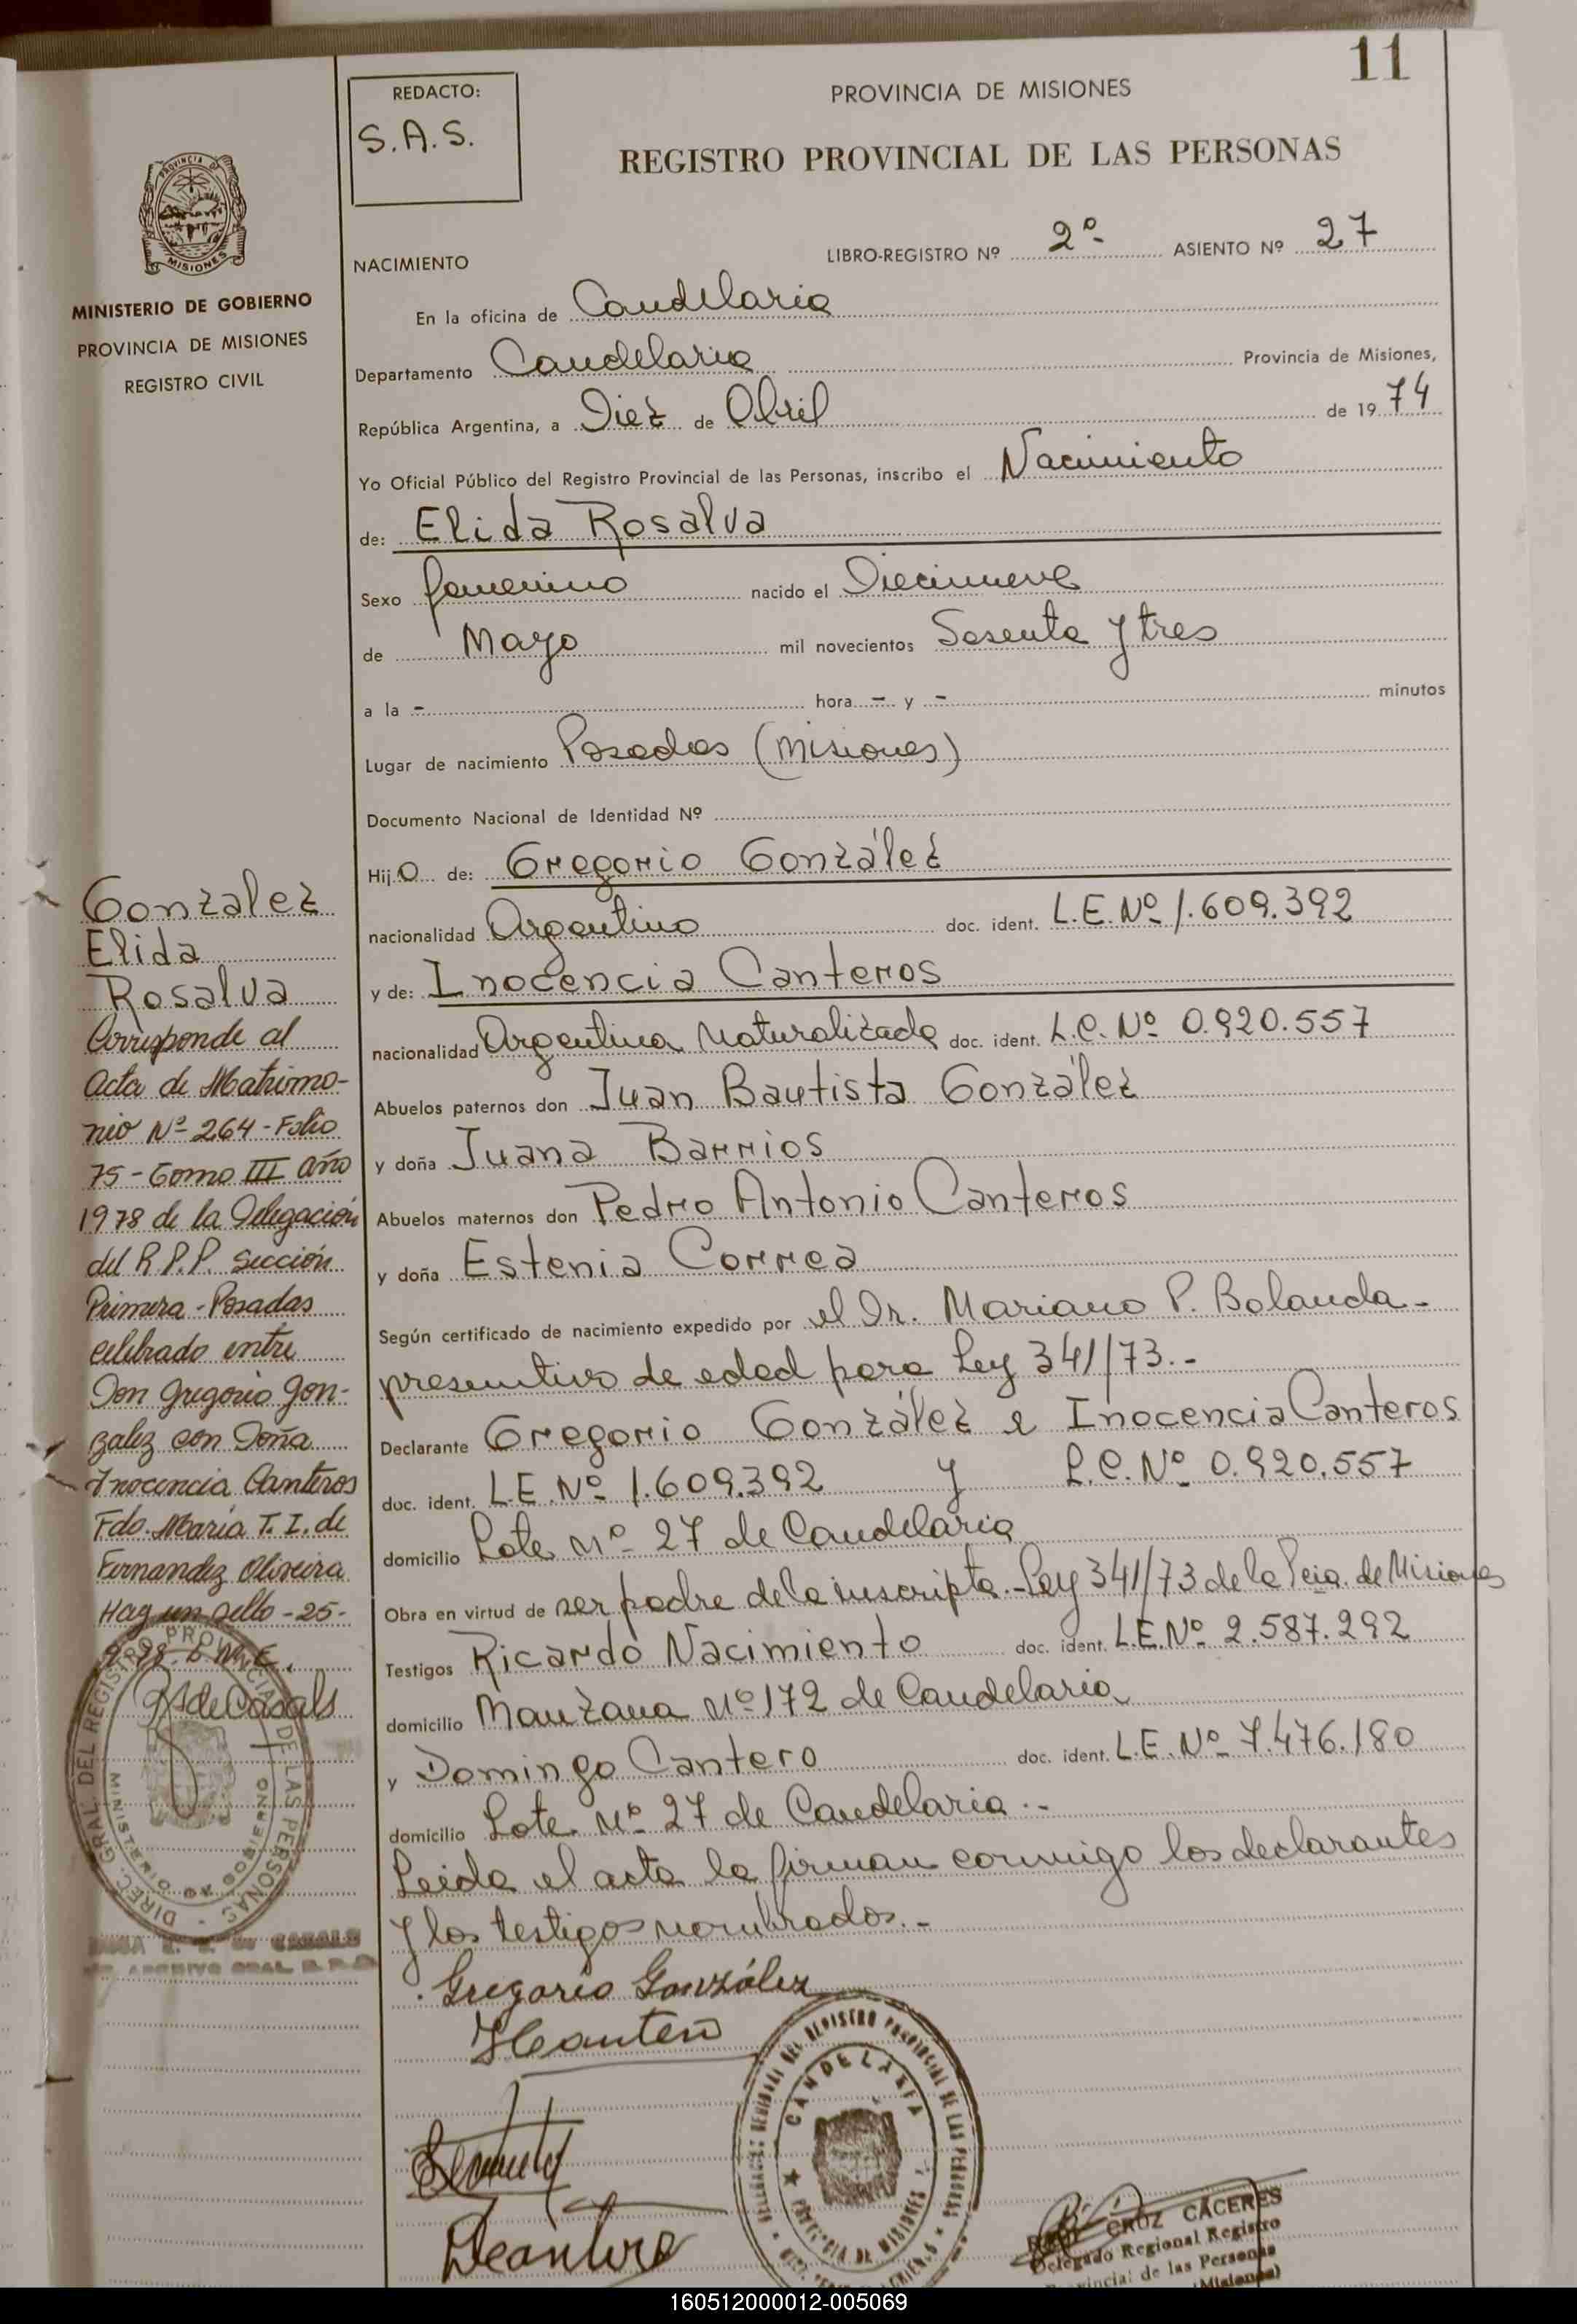 11
REDACTO:
S.A.S.
PROVINCIA DE MISIONES
REGISTRO PROVINCIAL DE LAS PERSONAS
PROVINCIA DE
MISIONES
MINISTERIO DE GOBIERNO
PROVINCIA DE MISIONES
REGISTRO CIVIL
NACIMIENTO LIBRO-REGISTRO Nº 2º ASIENTO Nº 27
En la oficina de Candelaria
Departamento Candelaria Provincia de Misiones,
República Argentina, a Diez de Abril de 1974
Yo Oficial Público del Registro Provincial de las Personas, inscribo el Nacimiento
de: Elida Rosalva
Sexo femenino nacido el Diecinueve
de Mayo mil novecientos Sesenta y tres
a la - hora - y - minutos
Lugar de nacimiento Posadas (Misiones)
Documento Nacional de Identidad Nº
Hijo de: Gregorio González
nacionalidad Argentino doc. ident. L.E. Nº 1.609.392
y de: Inocencia Canteros
nacionalidad Argentina Naturalizada doc. ident. L.C. Nº 0.920.557
Abuelos paternos don Juan Bautista González
y doña Juana Barrios
Abuelos maternos don Pedro Antonio Canteros
y doña Estenia Correa
Según certificado de nacimiento expedido por el Dr. Mariano P. Bolanda-
presuntivo de edad para Ley 341/73.-
Declarante Gregorio González e Inocencia Canteros
doc. ident. L.E. Nº 1.609.392 y L.C. Nº 0.920.557
domicilio Lote Nº 27 de Candelaria
Obra en virtud de ser padre de la inscripta.-Ley 341/73 de la Pcia. de Misiones
Testigos Ricardo Nacimiento doc. ident. L.E. Nº 2.587.292
domicilio Manzana Nº 172 de Candelaria
y Domingo Cantero doc. ident. L.E. Nº 7.476.180
domicilio Lote Nº 27 de Candelaria.-
Leida el acta la firman conmigo los declarantes
y los testigos nombrados.-
Gregorio González
ICantero
Gonzalez
Elida
Rosalva
Corresponde al
Acta de Matrimo-
nio Nº 264-Folio
75-Tomo III año
1978 de la Delegación
del R.P.P. Sección
Primera-Posadas
celebrado entre
Don Gregorio Gon-
zalez con Doña
Inocencia Canteros
Fdo. María T. I. de
Fernandez Oliveira
Hay un sello -25-
de Casals
DIREC. GRAL. DEL REGISTRO PROVINCIAL DE LAS PERSONAS
MINISTERIO DE GOBIERNO
DE CASALS
ARCHIVO GRAL. R.P.P.
DEL REGISTRO PROVINCIAL DE LAS PERSONAS
CANDELARIA
PROVINCIA DE MISIONES
CRUZ CÁCERES
Delegado Regional Registro
Provincial de las Personas
(Misiones)
160512000012-005069